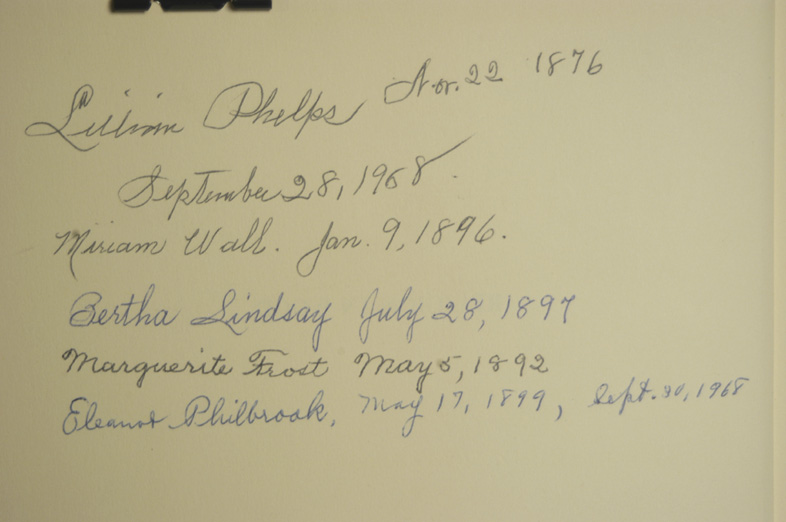 Lillian Phelps Nov. 22 1876
September 28, 1968.
Miriam Wall. Jan. 9, 1896.
Bertha Lindsay July 28, 1897
Marguerite Frost May 5, 1892
Eleanor Philbrook, May 17, 1899, Sept. 30, 1968